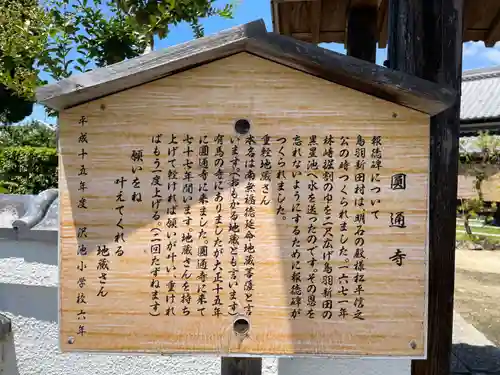 圓通寺
報徳碑について
鳥羽新田村は明石の殿様松平信之
公の時つくられました。一六七一年
林崎掘割のゆを二尺広げ鳥羽新田の
皿池へ水を送ったのです。その恩を
忘れないようにするために報徳碑が
つくられました。
重軽地蔵さん
本名は南無福徳延命地蔵菩薩と言
います(おもかる地蔵とも言います)
有馬の寺にありましたが大正十五年
に圓通寺に来ました。圓通寺に来て
七十七年間になります。御地蔵さんを持ち
上げて軽ければ願いが叶い、重けれ
ばもう一度上げる(二回たずねます)
願いをね
叶えてくれる
地蔵さん
平成十五年度 沢池小学校六年